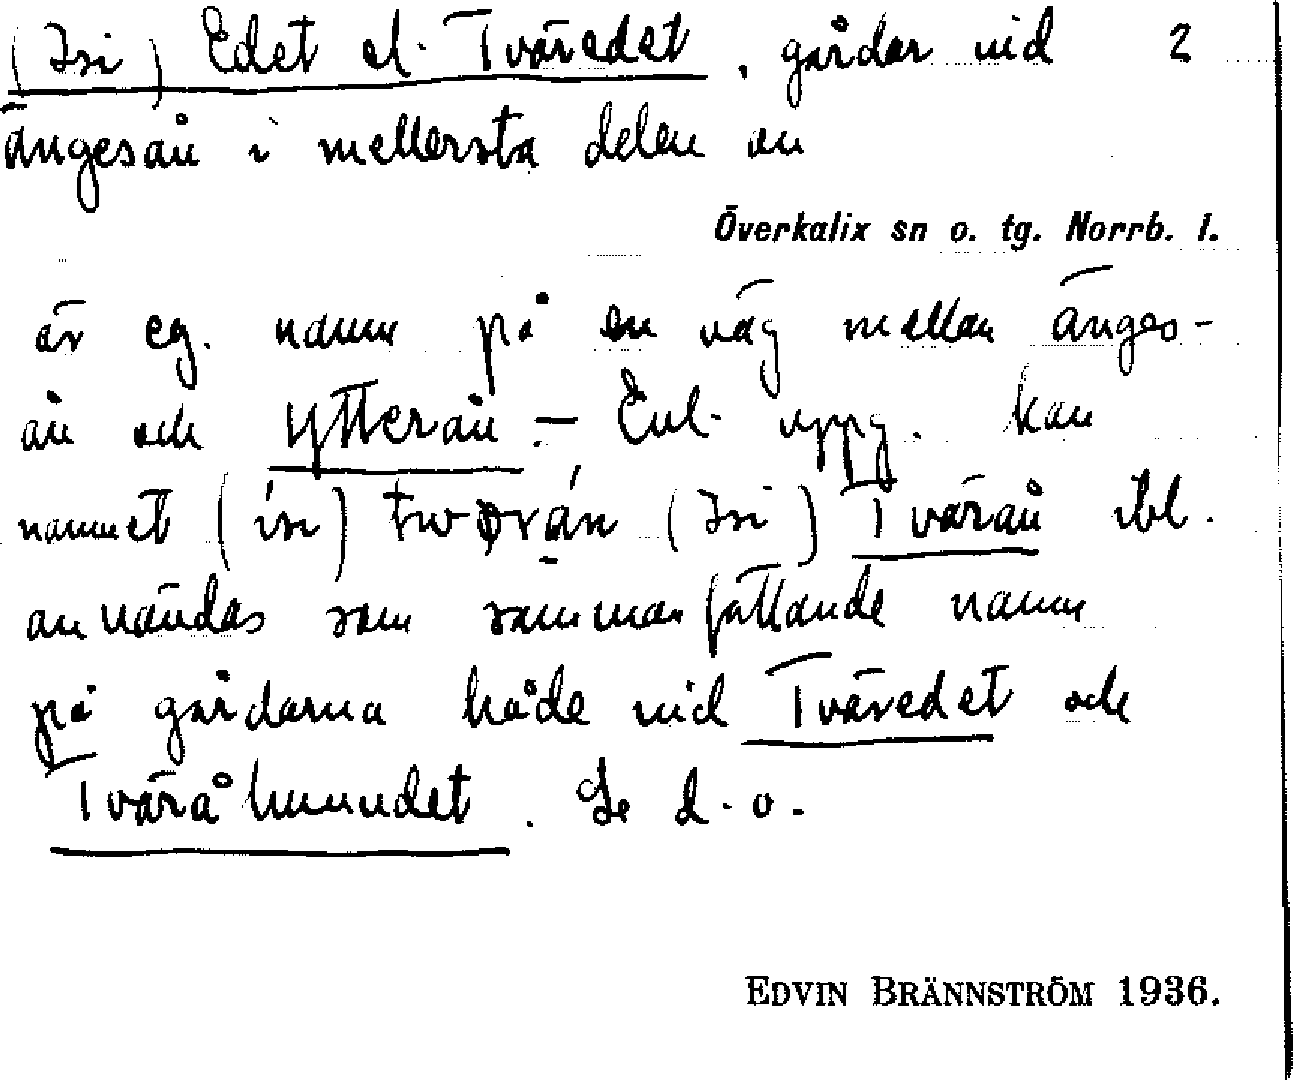 (Isi) Edet el. Tväredet, gårdar vid 2
Ängesån i mellersta delen av
Överkalix sn o. tg. Norrb. l.
är eg. namn på en väg mellan Änges-
ån och Ytterån. – Enl. uppg. kan
namnet (isi) (Isi) Tvärån ibl.
användas som sammanfattande namn
på gårdarna både vid Tväredet och
Tväråhuvudet. Se d. o.
EDVIN BRÄNNSTRÖM 1936.